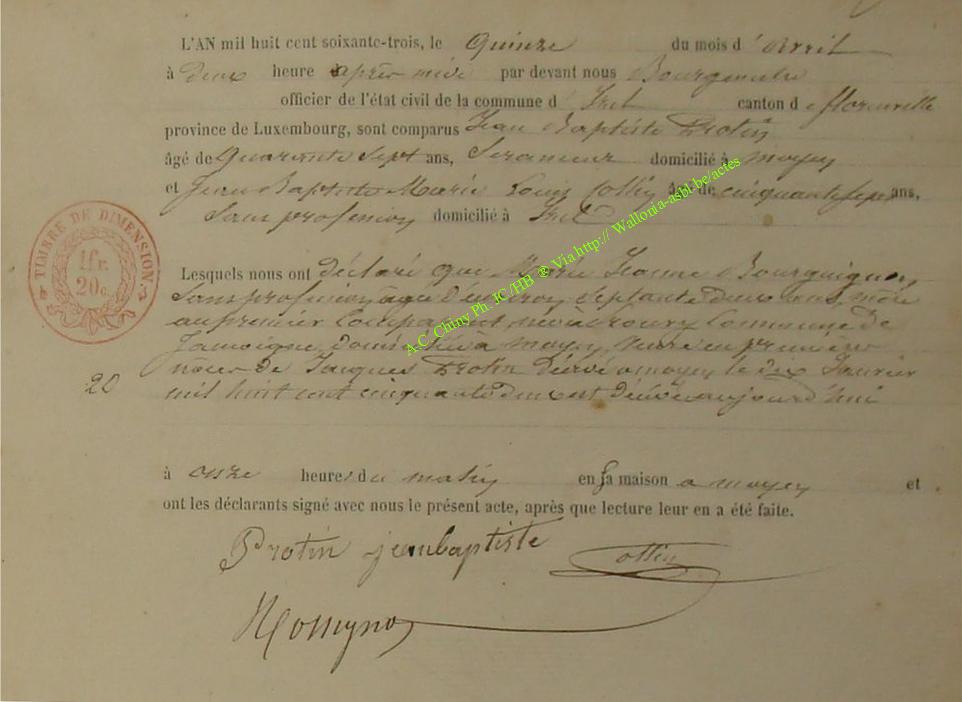 L'AN mil huit cent soixante-trois, le Quinze du mois d'avril
à deux heure après midi par devant nous Bourgmestre
officier de l'état civil de la commune d'Izel canton de florenville
province de Luxembourg, sont comparus Jean Baptiste Protin
âgé de Quarante Sept ans, domicilié à moyen
et Jean Baptiste Marie Louis Collin âgé de cinquante sept ans,
Sans profession domicilié à Izel
TIMBRE DE DIMENSION
1fr.
20c.
Lesquels nous ont déclaré que Marie Jeanne Bourguignon,
Sans profession agée d'environ Septante deux ans, mère
au premier Comparant, née à roury Commune de
Jamoigne, domiciliée à moyen, veuve en premiere
noces de Jacques Protin décédé a moyen le dix Janvier
20
mil huit cent cinquante deux est décédée aujourd'hui
à onze heures du matin en sa maison a moyen et
ont les déclarants signé avec nous le présent acte, après que lecture leur en a été faite.
Protin jeanbaptiste Collin
A.C. Chiny Ph. JC /HB ® Via http:// Wallonia-asbl-be/actes